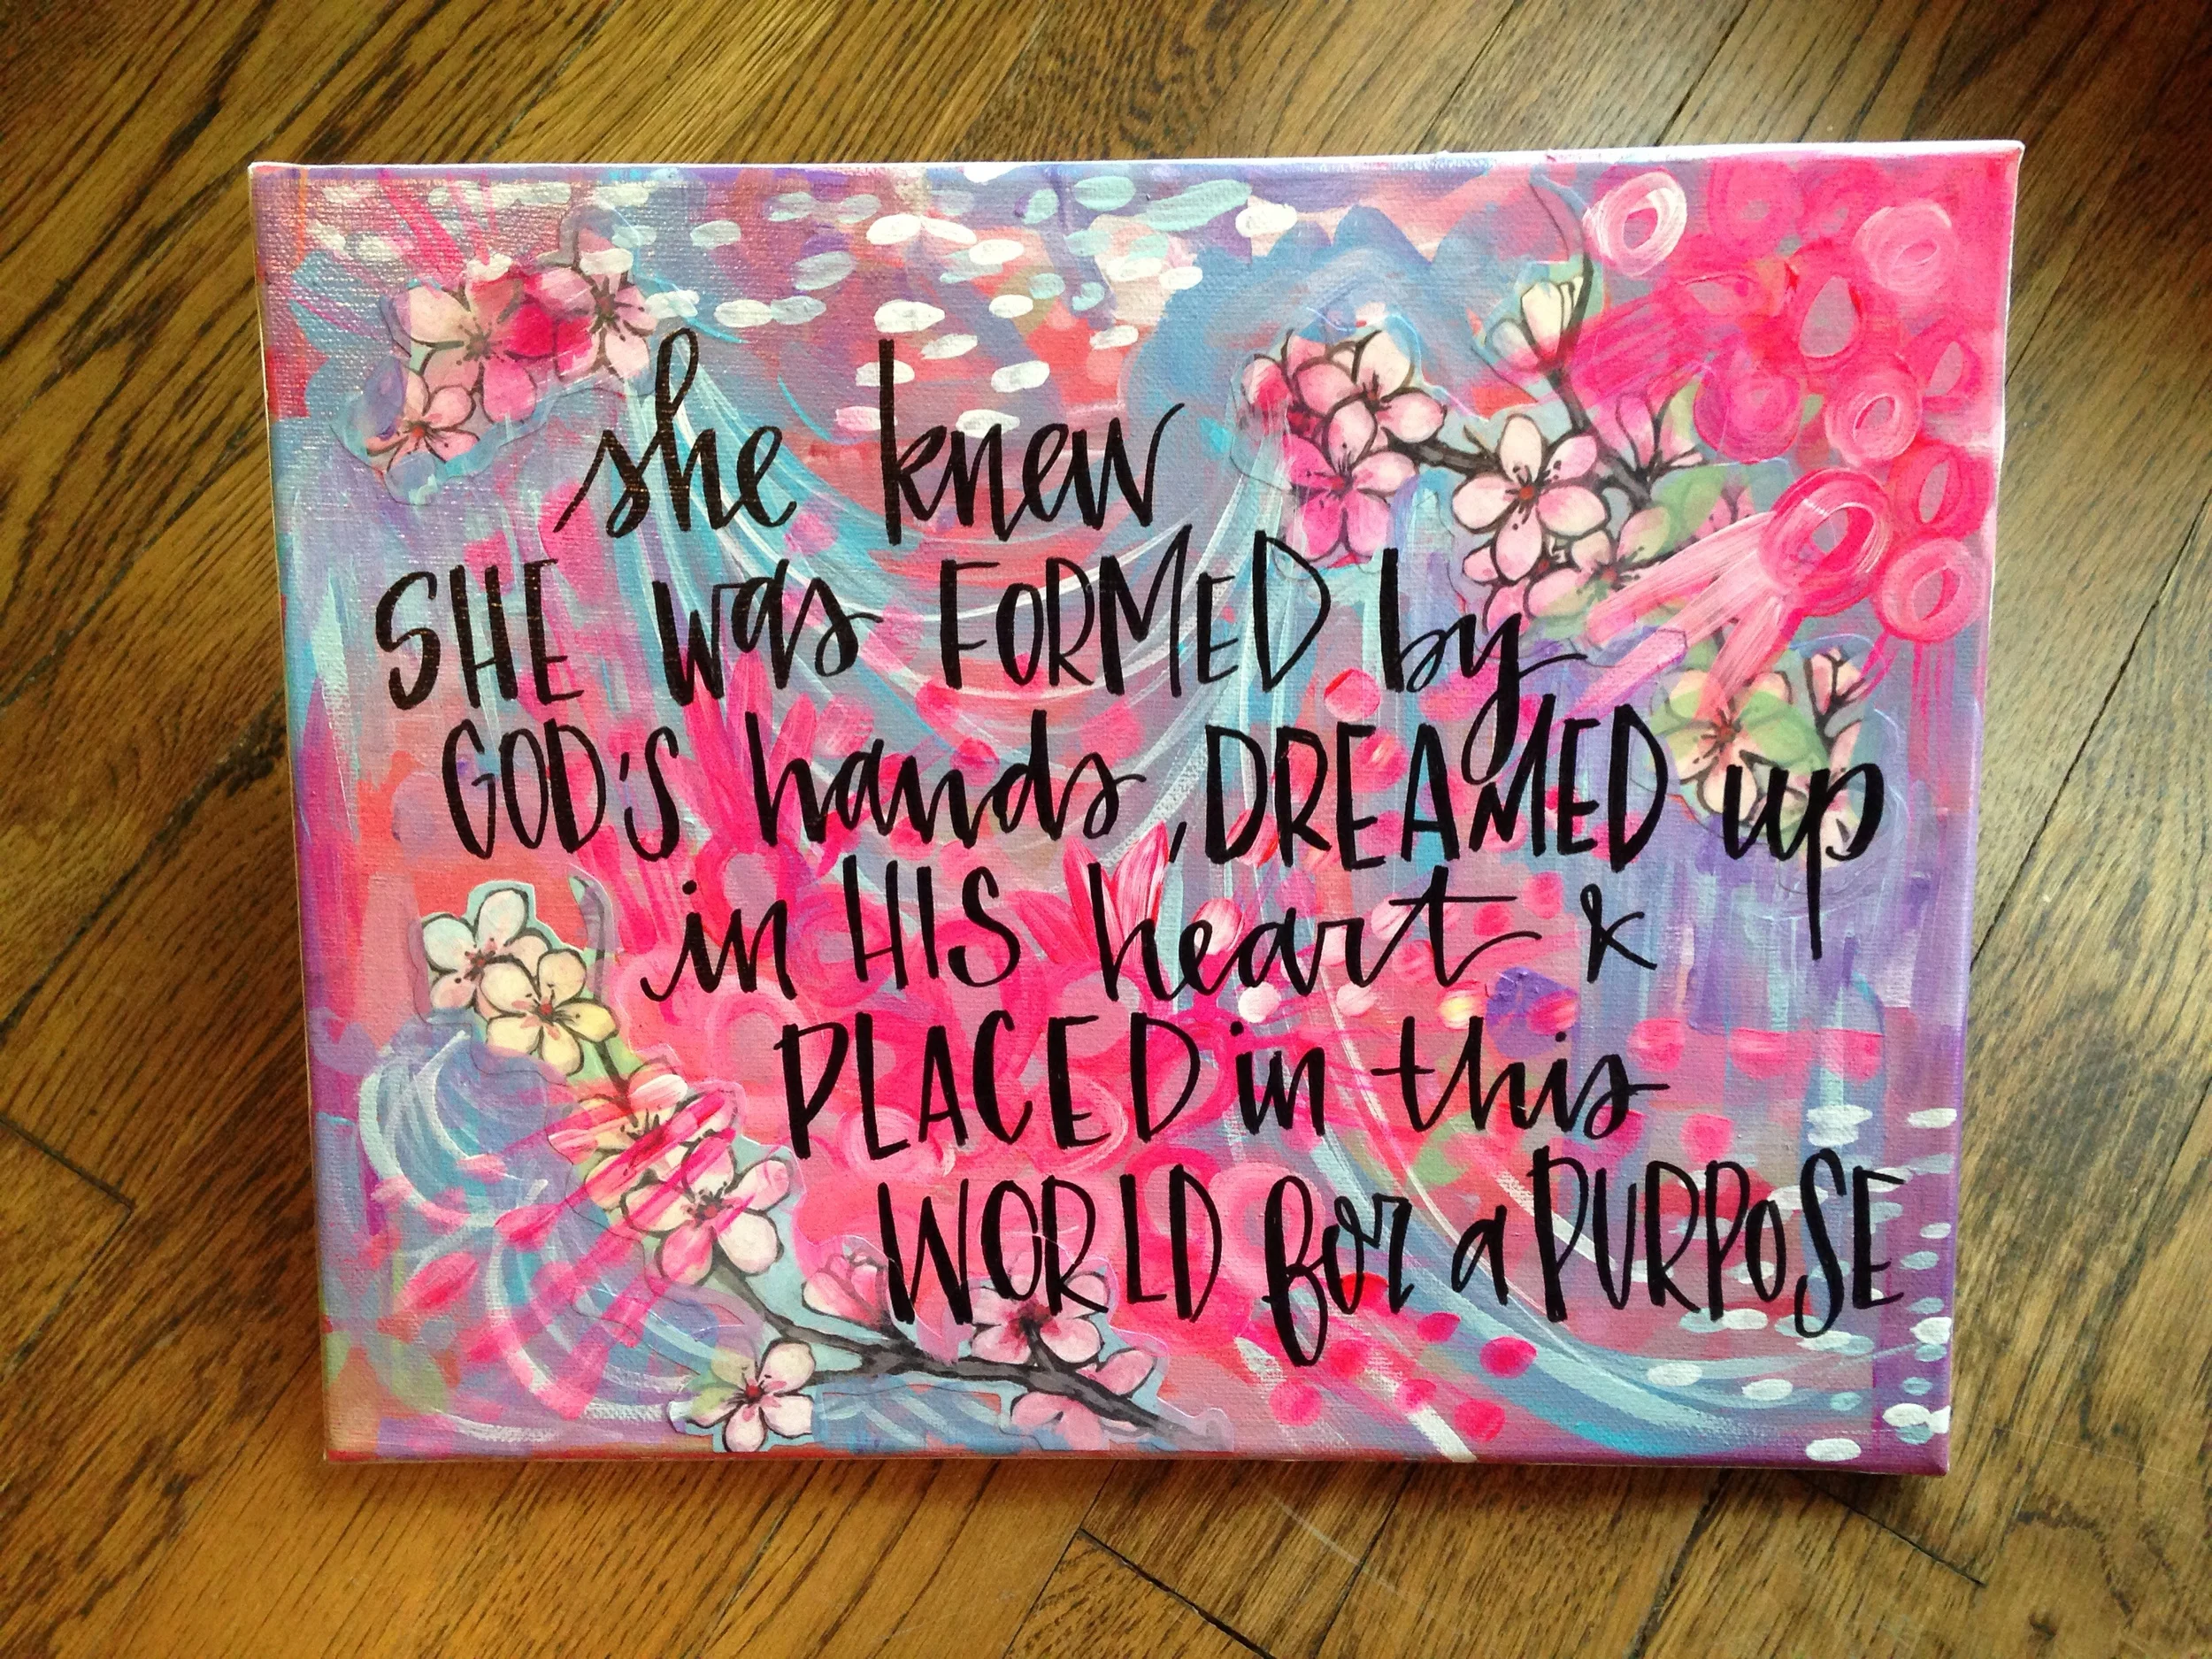 she knew
SHE was FORMED by
GOD'S hands, DREAMED up
in HIS heart &
PLACED in this
WORLD for a PURPOSE